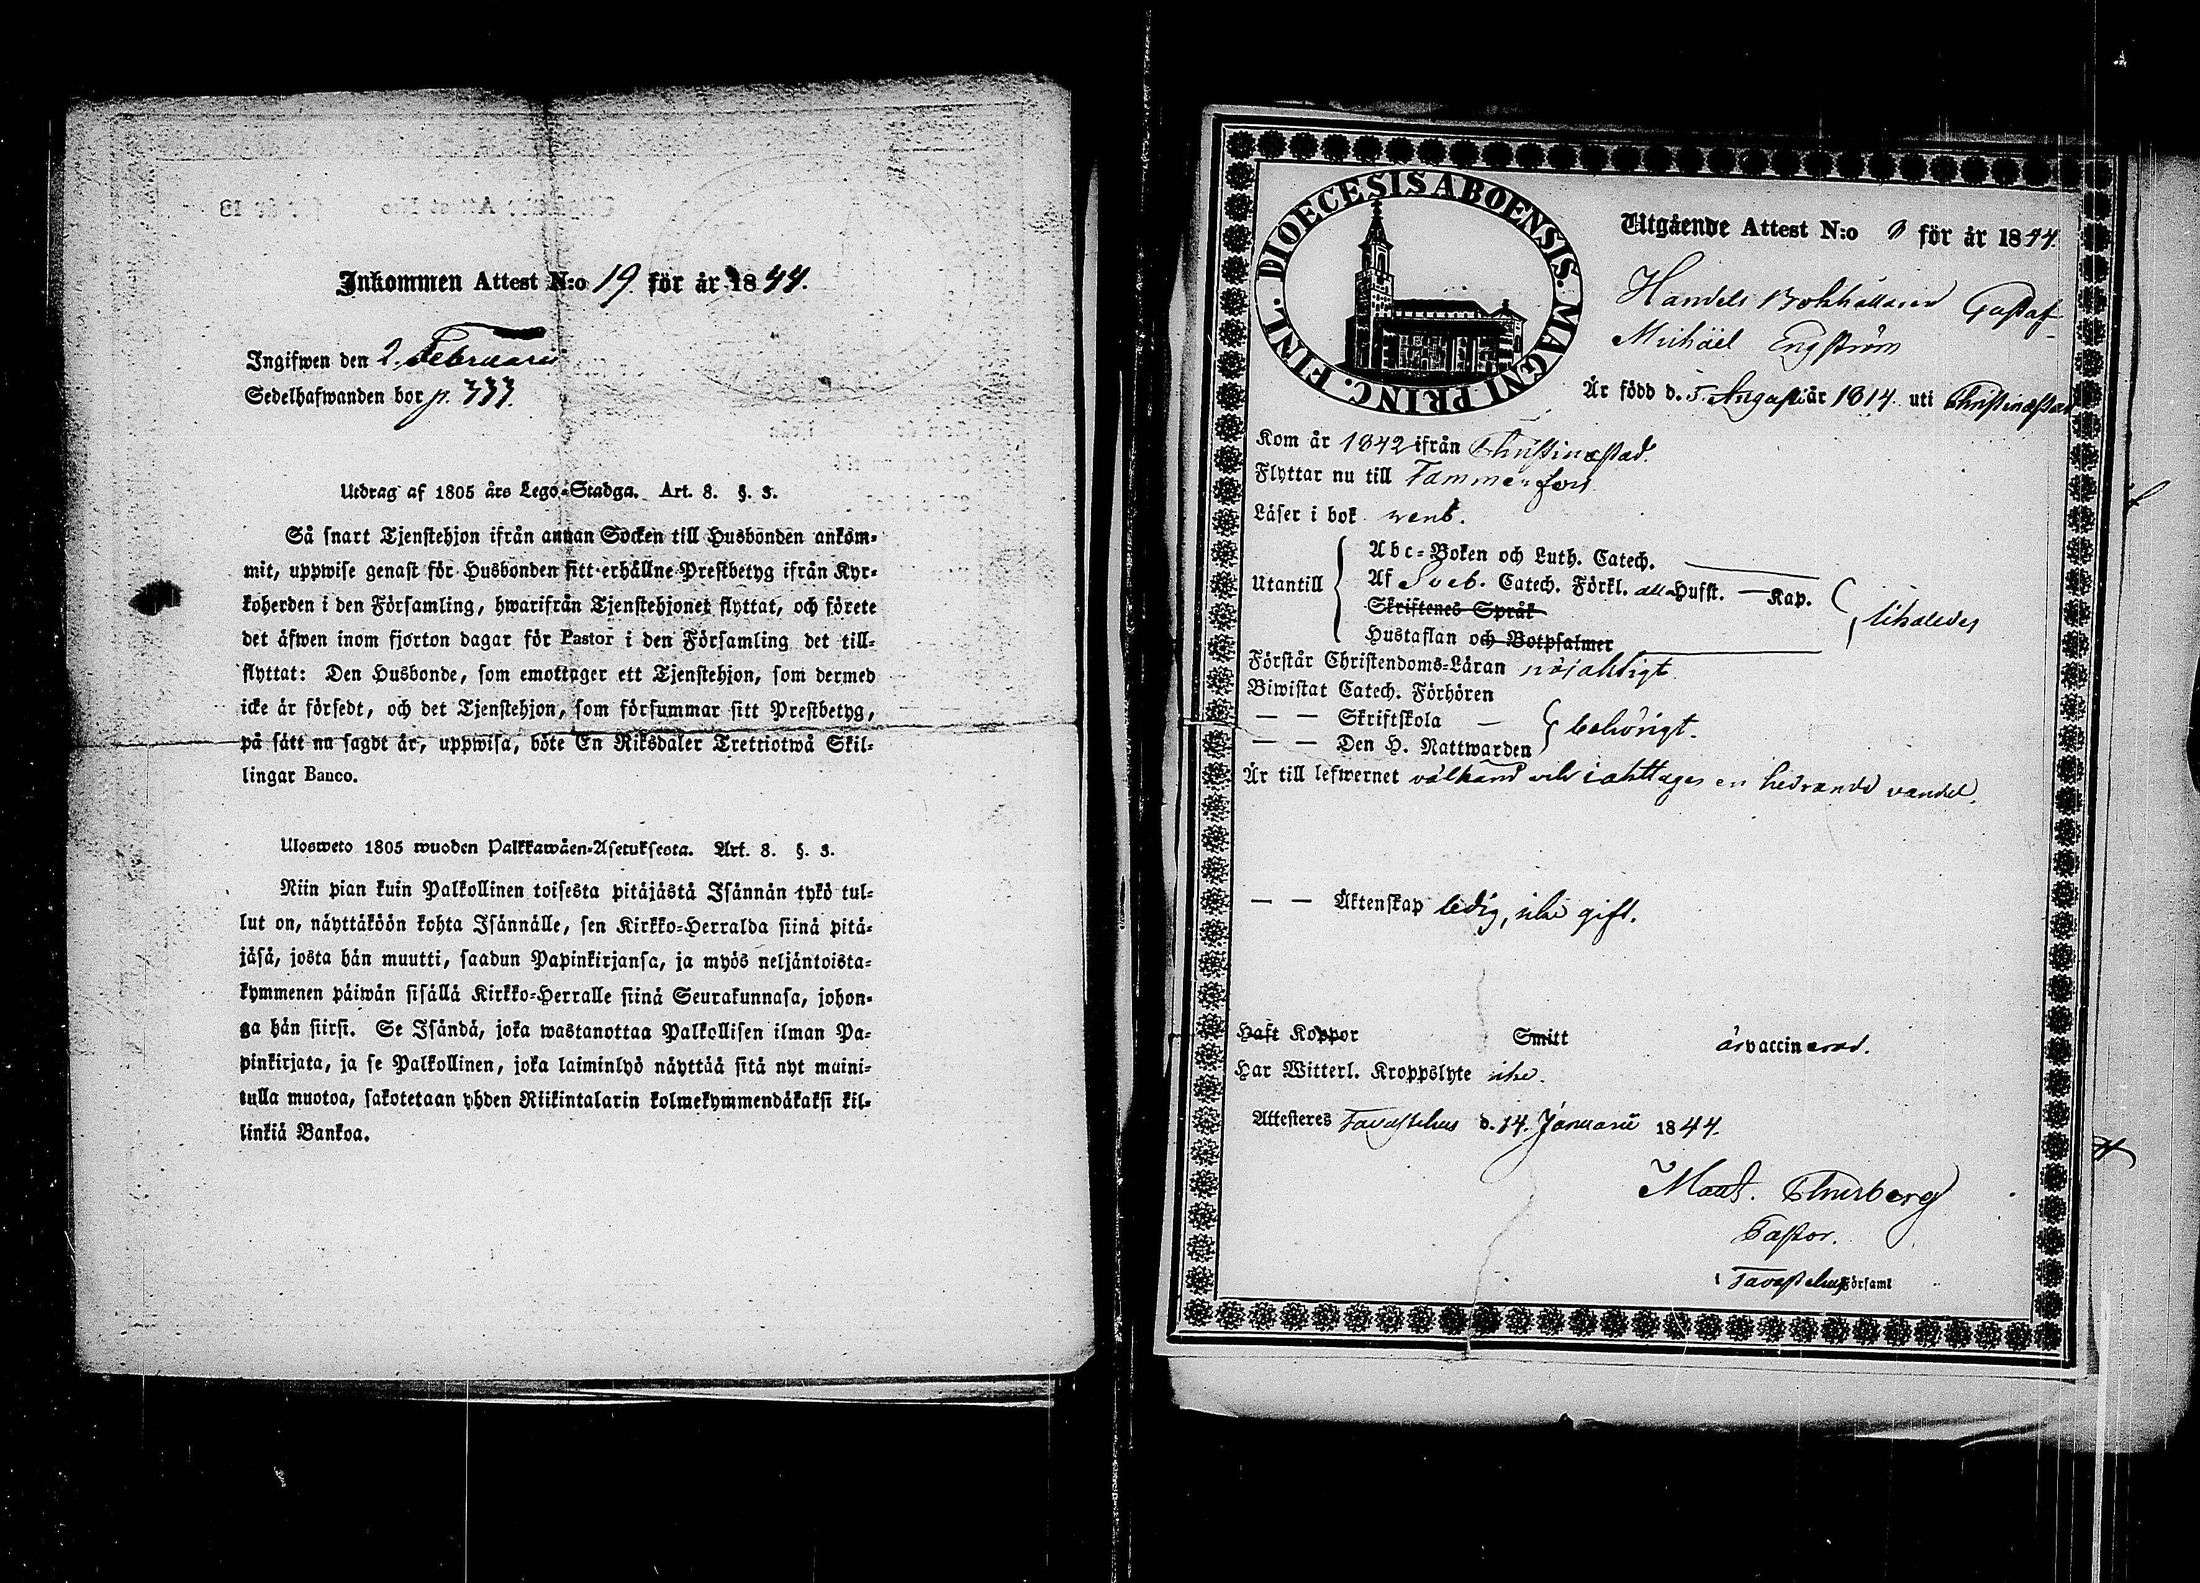 Inkommen Attest N:o 19. för år 1844.
Ingifwen den 2. Februarii
Sedelhafwanden bor p. 333.
Utdrag af 1805 års Lego-Stadga. Art. 8. §. 3.
Så snart Tjenstehjon ifrån annan Socken till Husbonden ankom-
mit, uppwise genast för Husbonden sitt erhållne Prestbetyg ifrån Kyr-
koherden i den Församling, hwarifrån Tjenstehjonet flyttat, och förete
det äfwen inom fjorton dagar för Pastor i den Församling det till-
flyttat: Den Husbonde, som emottager ett Tjenstehjon, som dermed
icke är försedt, och det Tjenstehjon, som försummar sitt Prestbetyg,
på sätt nu sagdt är, uppwisa, böte En Riksdaler Trettiotwå Skil-
lingar Banco.
Ulosweto 1805 wuoden Palkkawäen-Asetuksesta. Art. 8. §. 3.
Niin pian kuin Palkollinen toisesta pitäjästä Isännän tykö tul-
lut on, näyttäköön kohta Isännälle, sen Kirkko-Herralda siinä pitä-
jäsä, josta hän muutti, saadun Papinkirjansa, ja myös neljäntoista-
kymmenen päiwän sisällä Kirkko-Herralle siinä Seurakunnasa, johon-
ga hän siirsi. Se Isändä, joka wastanottaa Palkollisen ilman Pa-
pinkirjata, ja se Palkollinen, joka laiminlyö näyttää sitä nyt maini-
tulla muotoa, sakotetaan yhden Riikintalarin kolmekymmendäkaksi kil-
linkiä Bankoa.
DIOECESIS ABOENSIS. MAGNI PRINC. FINL.
Utgående Attest N:o för år 1844.
Handels Bokhållaren Gustaf
Michäel Engström
Är född d. 5 Augusti år 1814 uti Christinæstad
Kom år 1842 ifrån Christinæstad.
Flyttar nu till Tammerfors
Läser i bok rent.
Utantill
Abc-Boken och Luth. Catech.
Af Sveb. Catech. Förkl. alla Hufst. — Kap.
Skriftenes Språk
Hustaflan och Botpsalmer
likaledes
Förstår Christendoms-Läran nöjaktigt
Biwistat Catech. Förhören
— — Skriftskola —
— — Den H. Nattwarden
behörigt.
Är till lefwernet välkänd och iakttager en hedrande vandel.
— — Äktenskap ledig, icke gift.
Haft Koppor Smitt är vaccinerad.
Har Witterl. Kroppslyte icke.
Attesteres Tavastehus d. 14. Januarii 1844.
Pastor.
i Tavastehus Församl